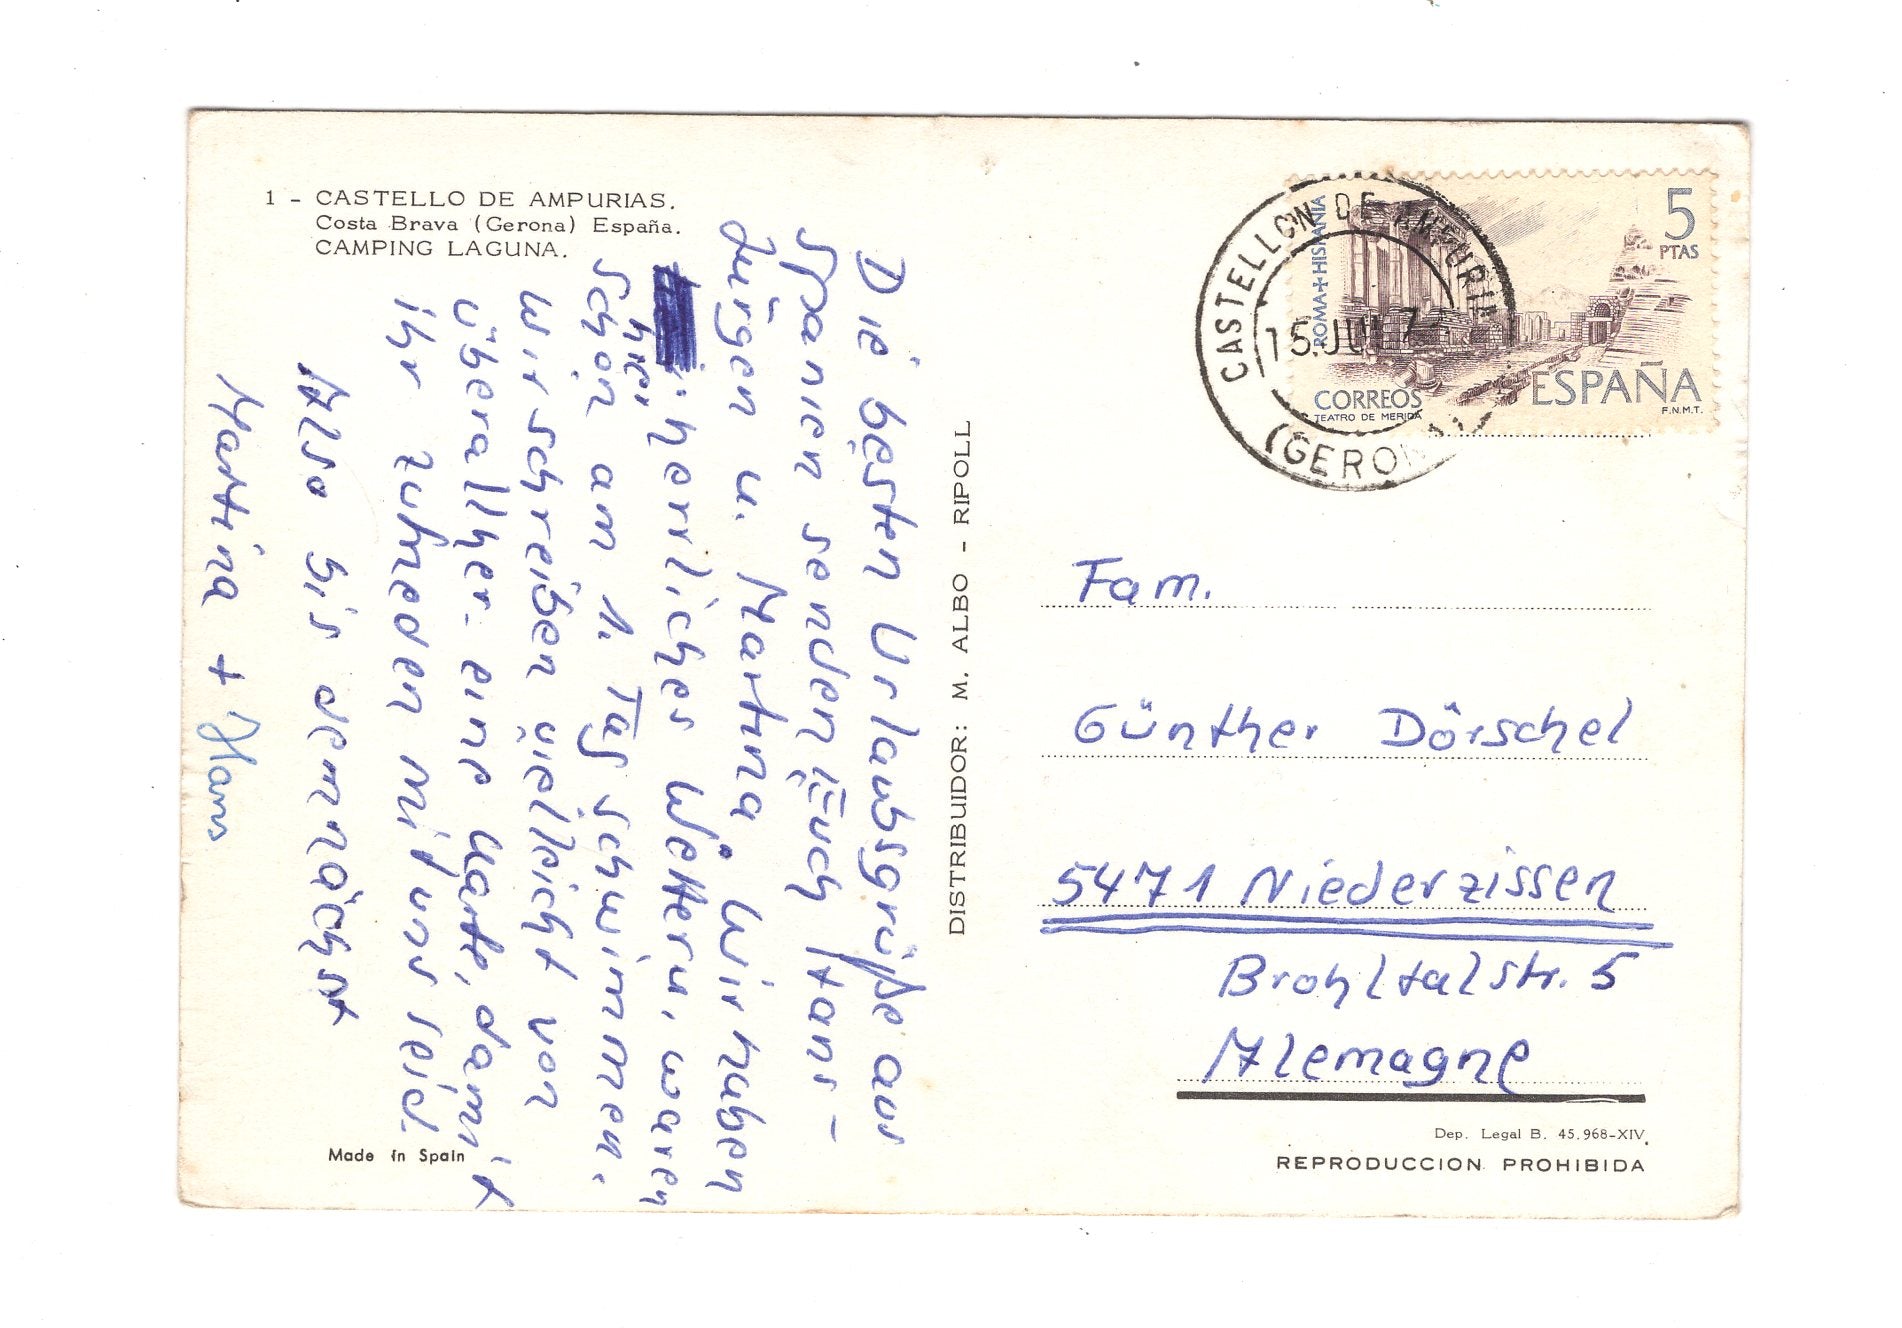 1 - CASTELLO DE AMPURIAS.
Costa Brava (Gerona) España.
CAMPING LAGUNA.
Die besten Urlaubsgrüße aus
Spanien senden Euch
Jürgen u. Martina. Wir haben
hier herrliches Wetter u. waren
schon am 1. Tag schwimmen.
Wir schreiben vielleicht von
überall her eine Karte, damit
ihr zufrieden mit uns seid.
Also bis demnächst
Martina + Hans
Made in Spain
DISTRIBUIDOR: M. ALBO - RIPOLL
CASTELLON DE AMPURIAS
15 JUL 7
(GERONA)
ROMA + HISPANIA
5
PTAS
CORREOS
TEATRO DE MERIDA
ESPAÑA
F.N.M.T.
Fam.
Günther Dörschel
5471 Niederzissen
Brohltalstr. 5
Alemagne
Dep. Legal B. 45.968-XIV
REPRODUCCION PROHIBIDA